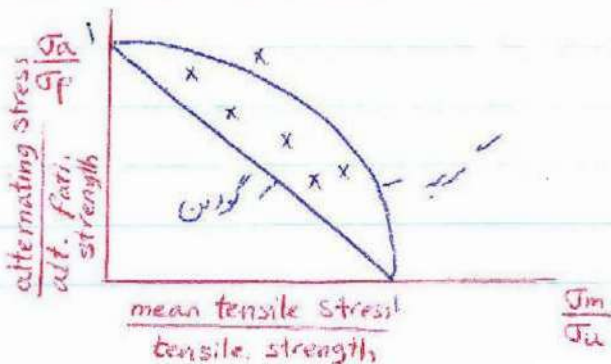 1
alternating stress
alt. fati. strength
σa
σp
گودمن
mean tensile stress
tensile strength
1
σm
σu